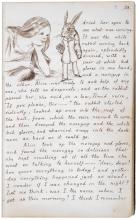 dried her eyes to
see what was coming.
It was the white
rabbit coming back
again, splendidly
dressed, with a
pair of white kid
gloves in one hand,
and a nosegay in
the other. Alice was ready to ask help of any
one, she felt so desperate, and as the rabbit
passed her, she said, in a low, timid voice,
"If you please, Sir—" the rabbit started
violently, looked up once into the roof of
the hall, from which the voice seemed to come,
and then dropped the nosegay and the white
kid gloves, and skurried away into the darkness
as hard as it could go.
Alice took up the nosegay and gloves,
and found the nosegay so delicious that
she kept smelling at it all the time she
went on talking to herself — "dear, dear!
how queer everything is today! and yesterday
everything happened just as usual:
I wonder if I was changed in the night?
Let me think: was I the same when I
got up this morning? I think I remember